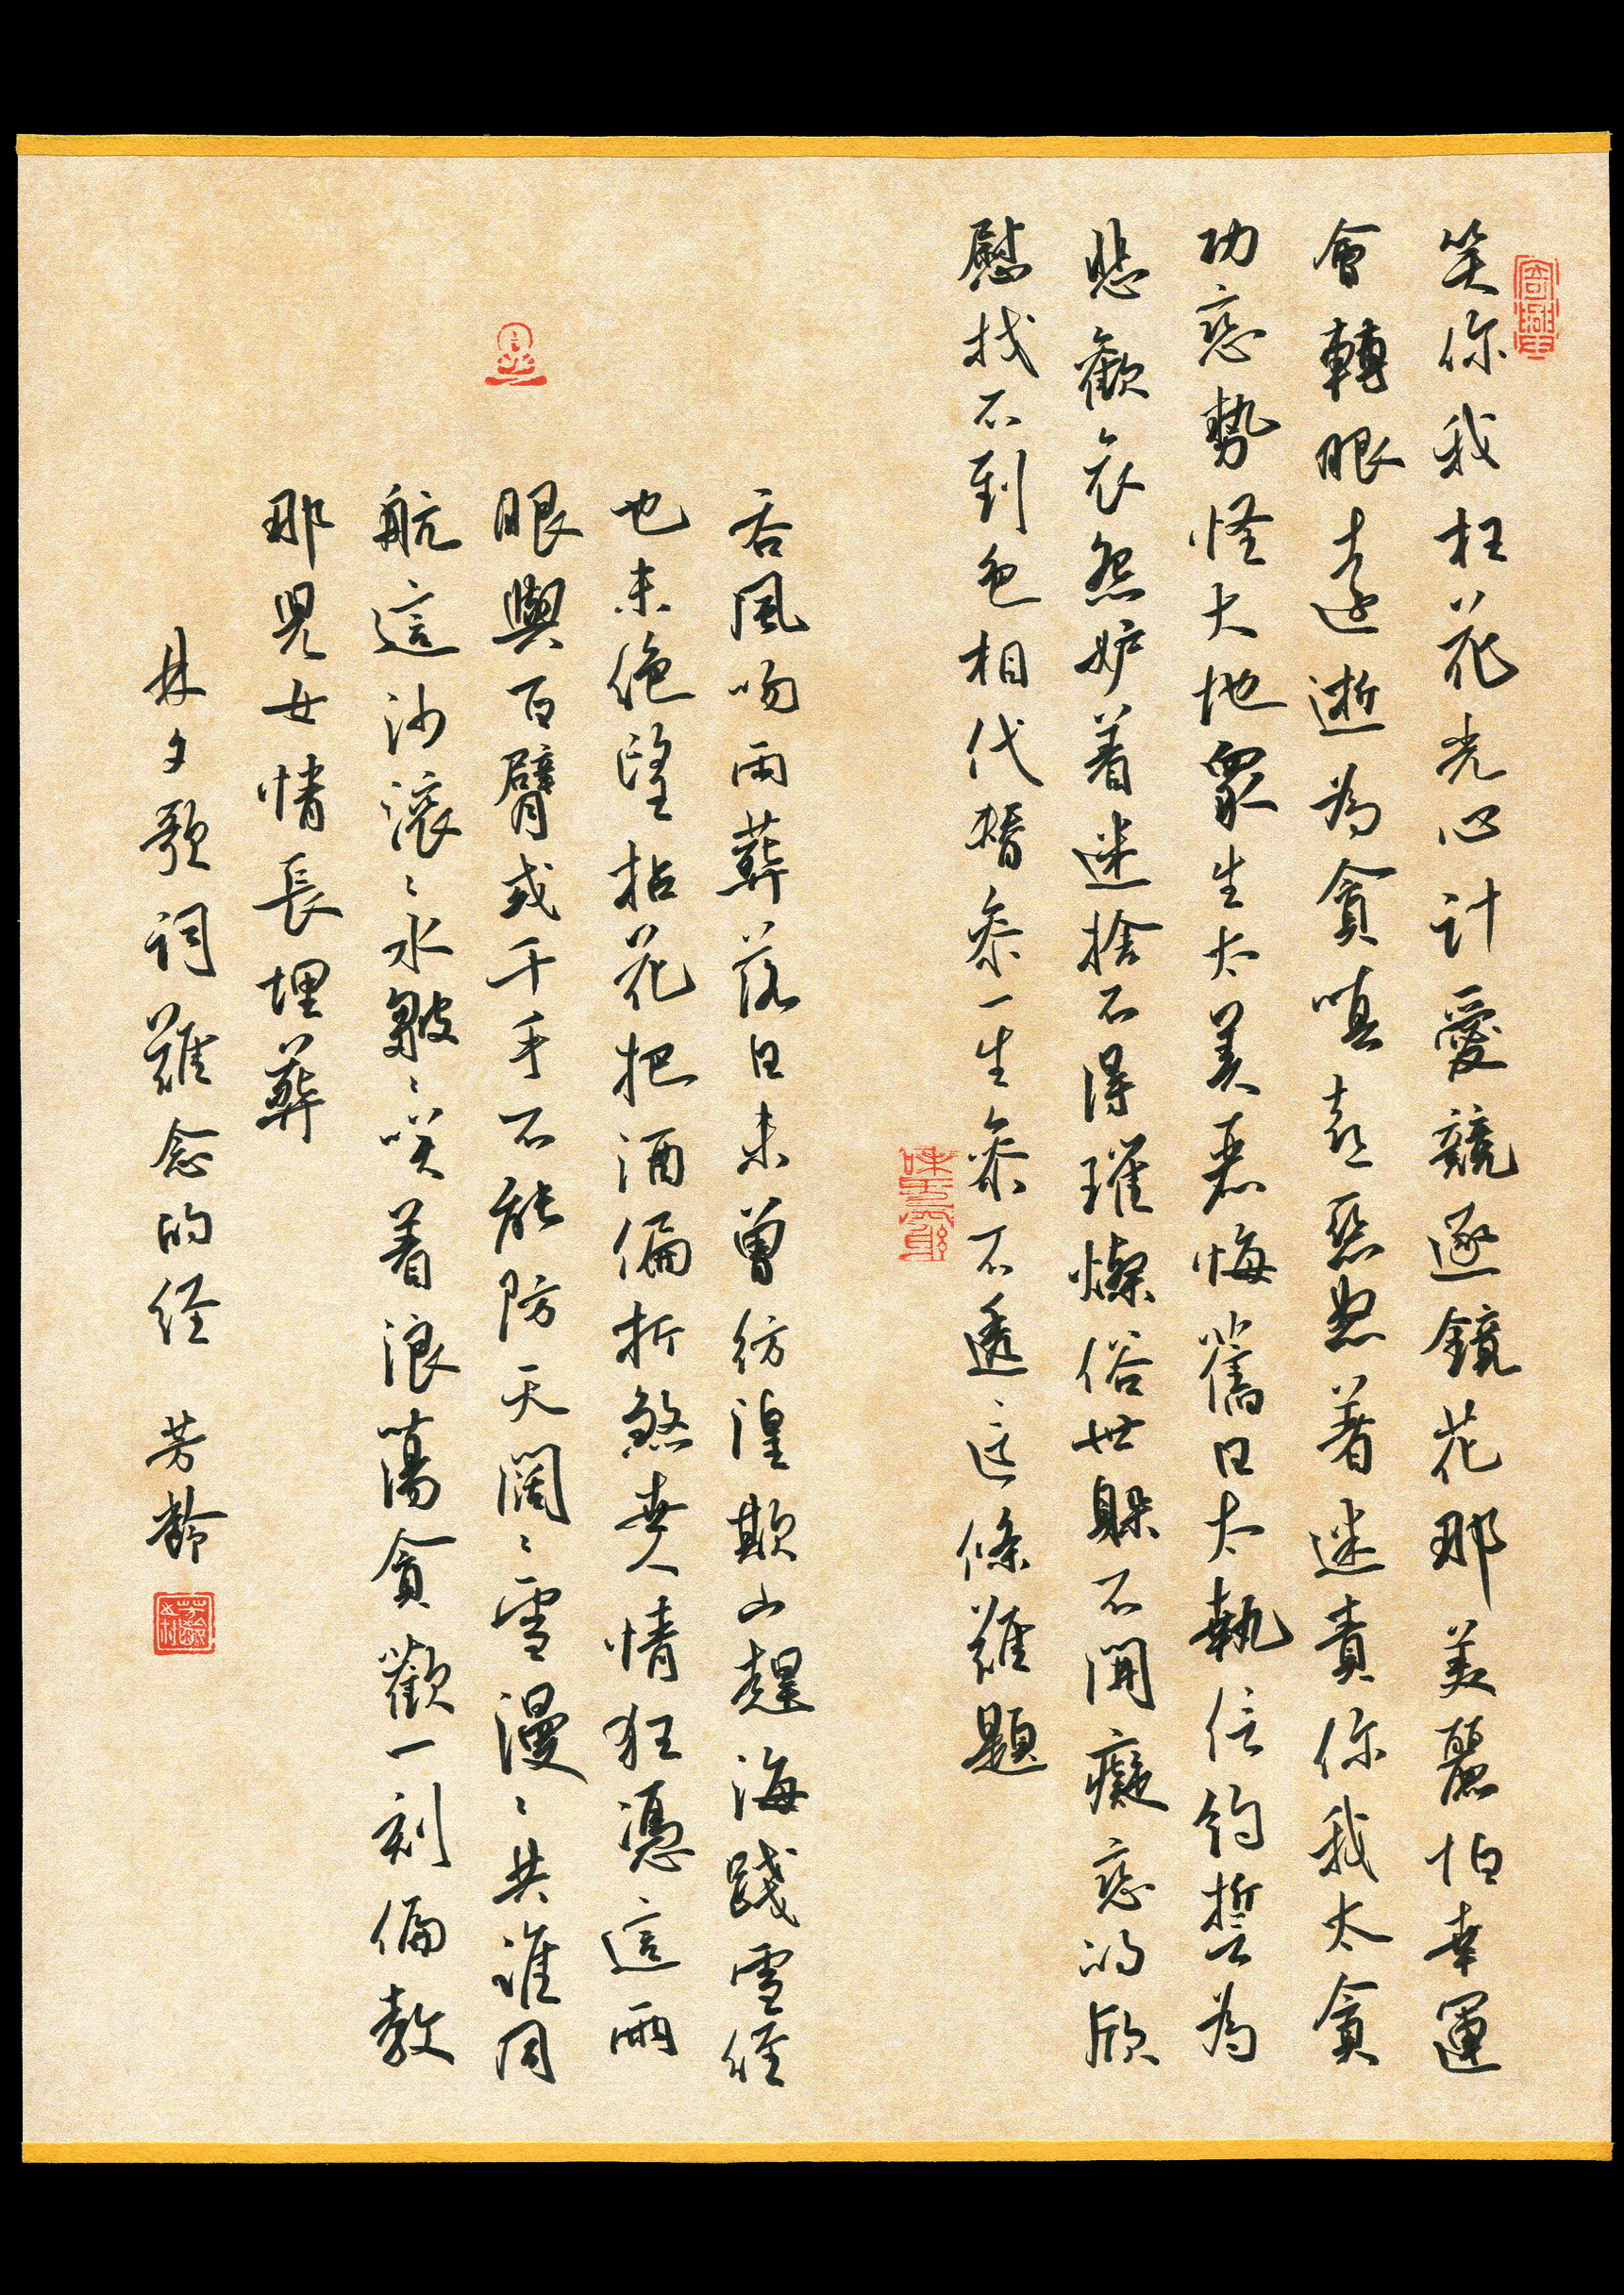 笑你我枉花光心計愛競逐鏡花那美麗怕幸運
會轉眼遠逝為貪嗔喜惡怒著迷責你我太貪
功戀勢怪大地眾生太美悪悔舊日太執信約誓為
悲歡哀怨妒着迷捨不得璀燦俗世躲不開癡戀的欣
慰找不到色相代替參一生參不透這條難題
吞風吻雨葬落日未曾彷徨欺山趕海踐雪徑
也未絕望拈花把酒偏折煞世人情狂憑這兩
眼與百臂或千手不能防天闊〻雪漫〻共誰同
航這沙滾〻水皺〻咲着浪蕩貪歡一刻偏教
那兒女情長埋葬
林夕歌詞難念的經 芳齡